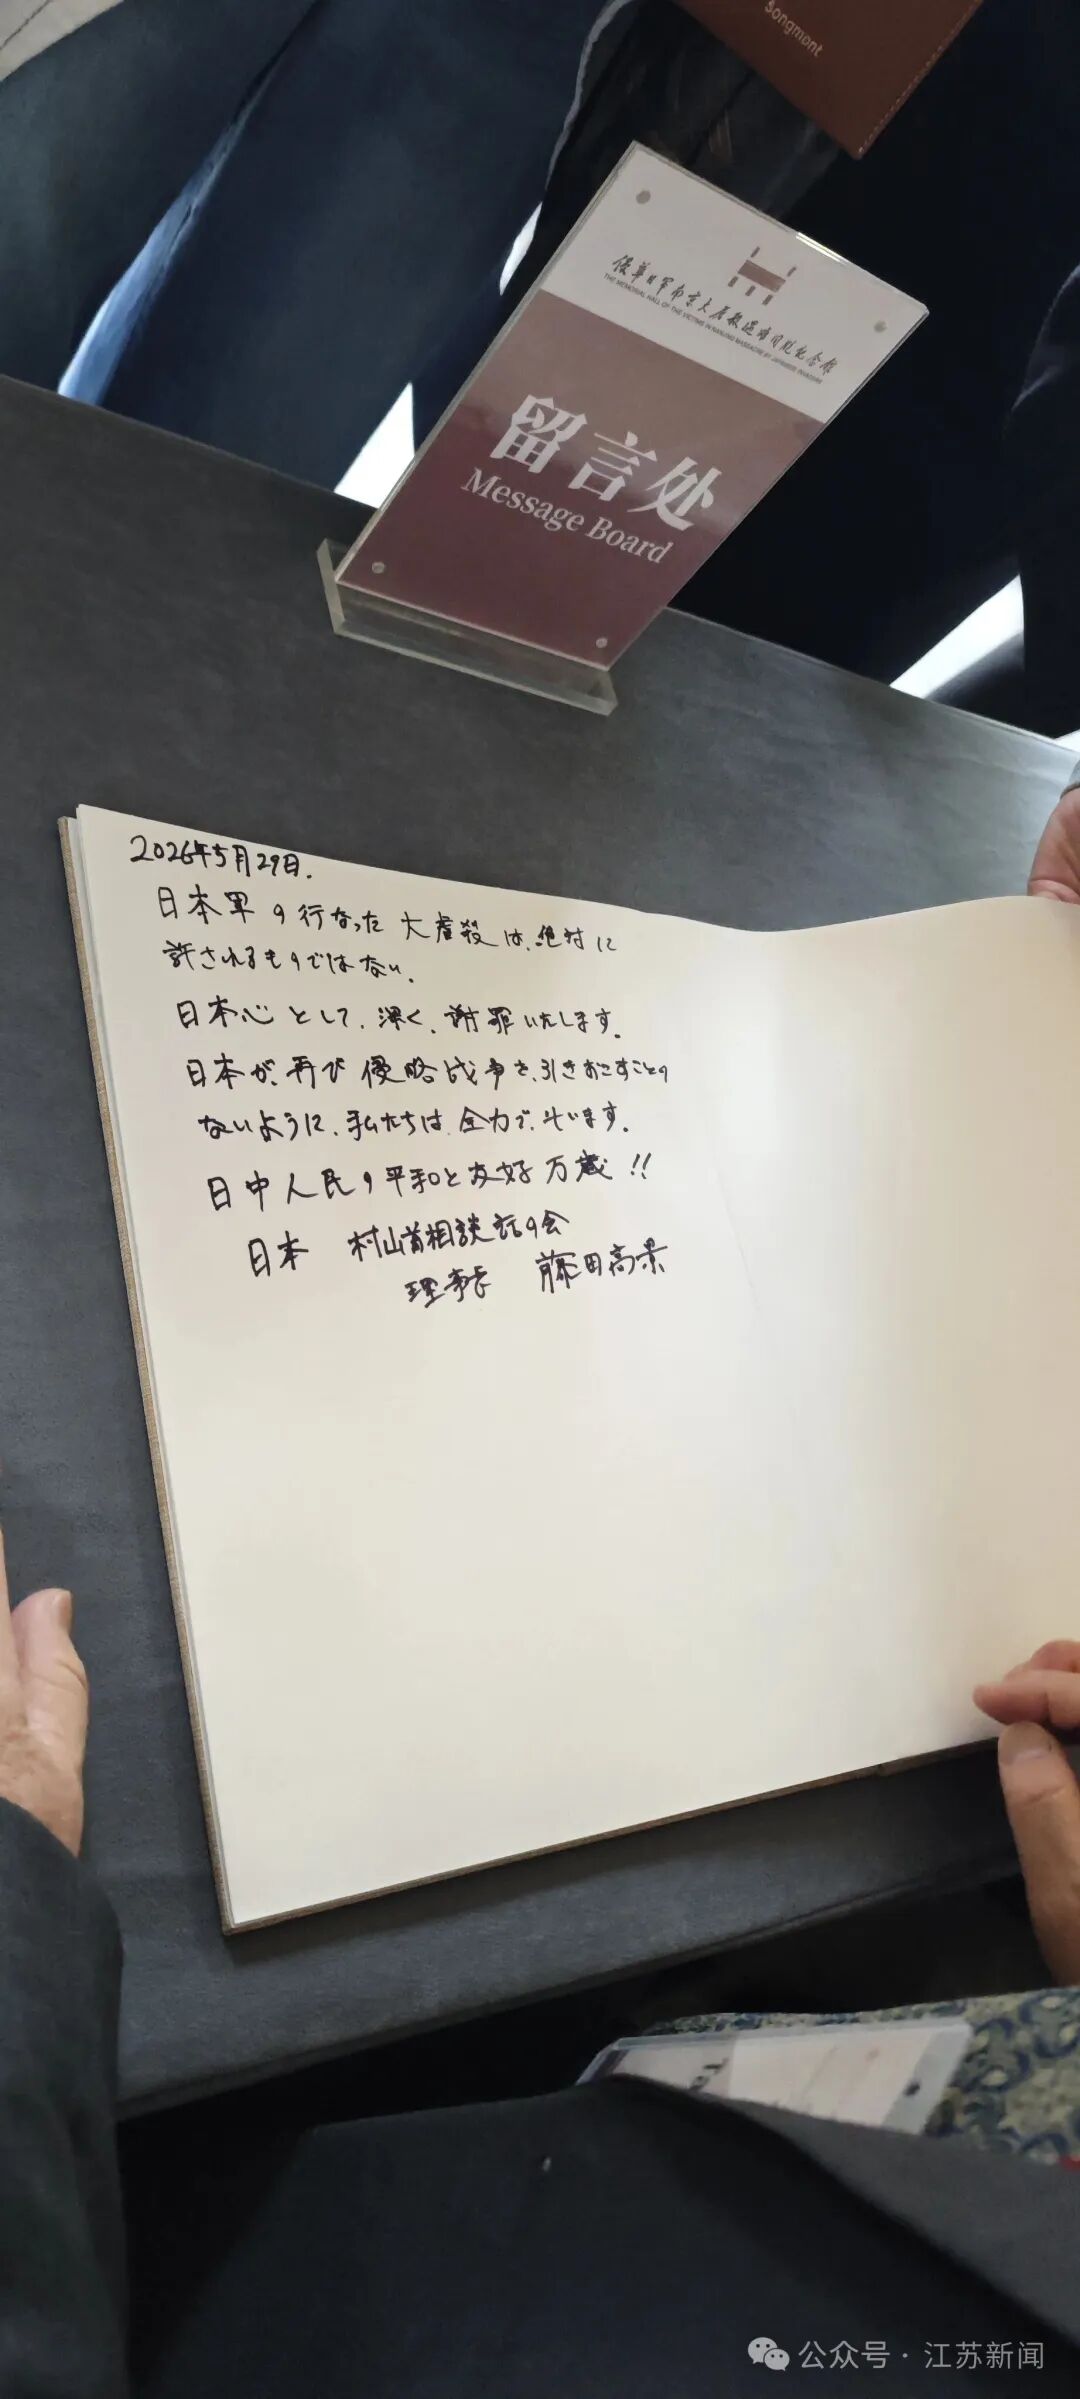 Songmont
侵华日军南京大屠杀遇难同胞纪念馆
THE MEMORIAL HALL OF THE VICTIMS IN NANJING MASSACRE BY JAPANESE INVADERS
留言处
Message Board
2026年5月29日.
日本軍の行なった大虐殺は、絶対に
許されるものではない.
日本心として、深く、謝罪いたします.
日本が、再び侵略战争を、引きおこすことの
ないように、私たちは、全力で、斗います.
日中人民の平和と友好万歳!!
日本 村山首相談話の会
理事長 藤田高景
公众号·江苏新闻